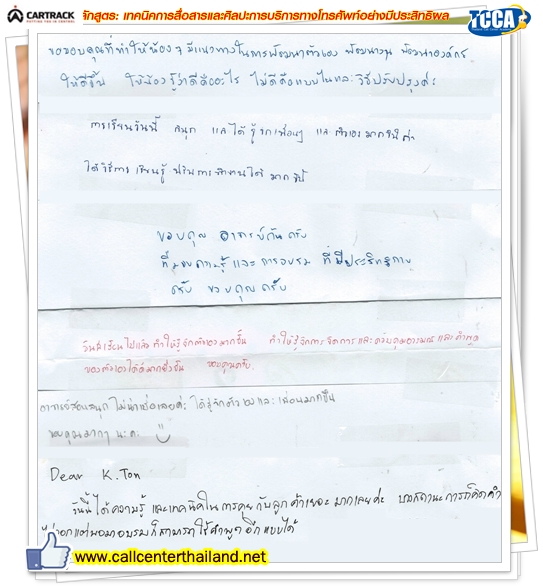 CARTRACK
จักสูตร: เทคนิคการสื่อสารและศิลปะการบริการทางโทรศัพท์อย่างมีประสิทธิผล
TCCA
ขอขอบคุณที่ทำให้น้อง ๆ มีแนวทางในการพัฒนาตัวเอง พัฒนางาน พัฒนาองค์กร
ให้ดีขึ้น ให้น้องรู้ว่าดีคืออะไร ไม่ดีคือแบบไหนและวิธีปรับปรุงค่ะ
การเรียนวันนี้ สนุก และได้รู้จักเพื่อนๆ และตัวเองมากขึ้นค่ะ
ได้วิธีการ เรียนรู้ ทำงานได้มากขึ้น
ขอบคุณ อาจารย์ต้นครับ
ที่มอบความรู้และการอบรม ที่มีประสิทธิภาพ
ครับ ขอบคุณครับ
วันนี้เรียนไปแล้วทำให้รู้จักตัวเองมากขึ้น ทำให้รู้จักการจัดการและควบคุมอารมณ์และคำพูด
ของตัวเองได้ดีมากยิ่งขึ้น ขอบคุณครับ.
อาจารย์สอนสนุก ไม่น่าเบื่อเลยค่ะ ได้รู้จักตัวเองและเพื่อนมากขึ้น
ขอบคุณมากๆ นะคะ
Dear K. Ton
วันนี้ได้ความรู้และเทคนิคในการคุยกับลูกค้าเยอะมากเลยค่ะ บางสถานะการคิดคำ
ไม่ออกแต่พอมาอบรมก็สามารถใช้คำพูดอีกแบบได้
www.callcenterthailand.net